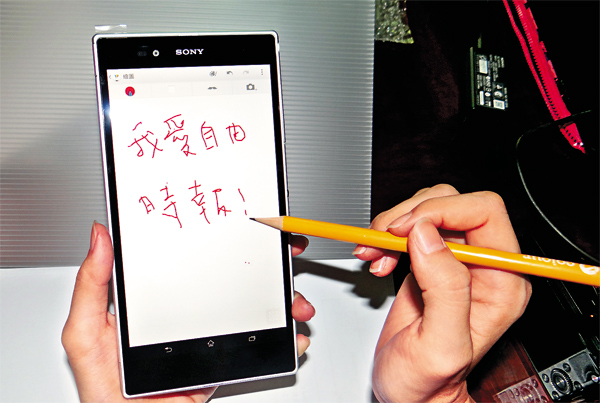 SONY
繪圖
我愛自由
時報!
colour